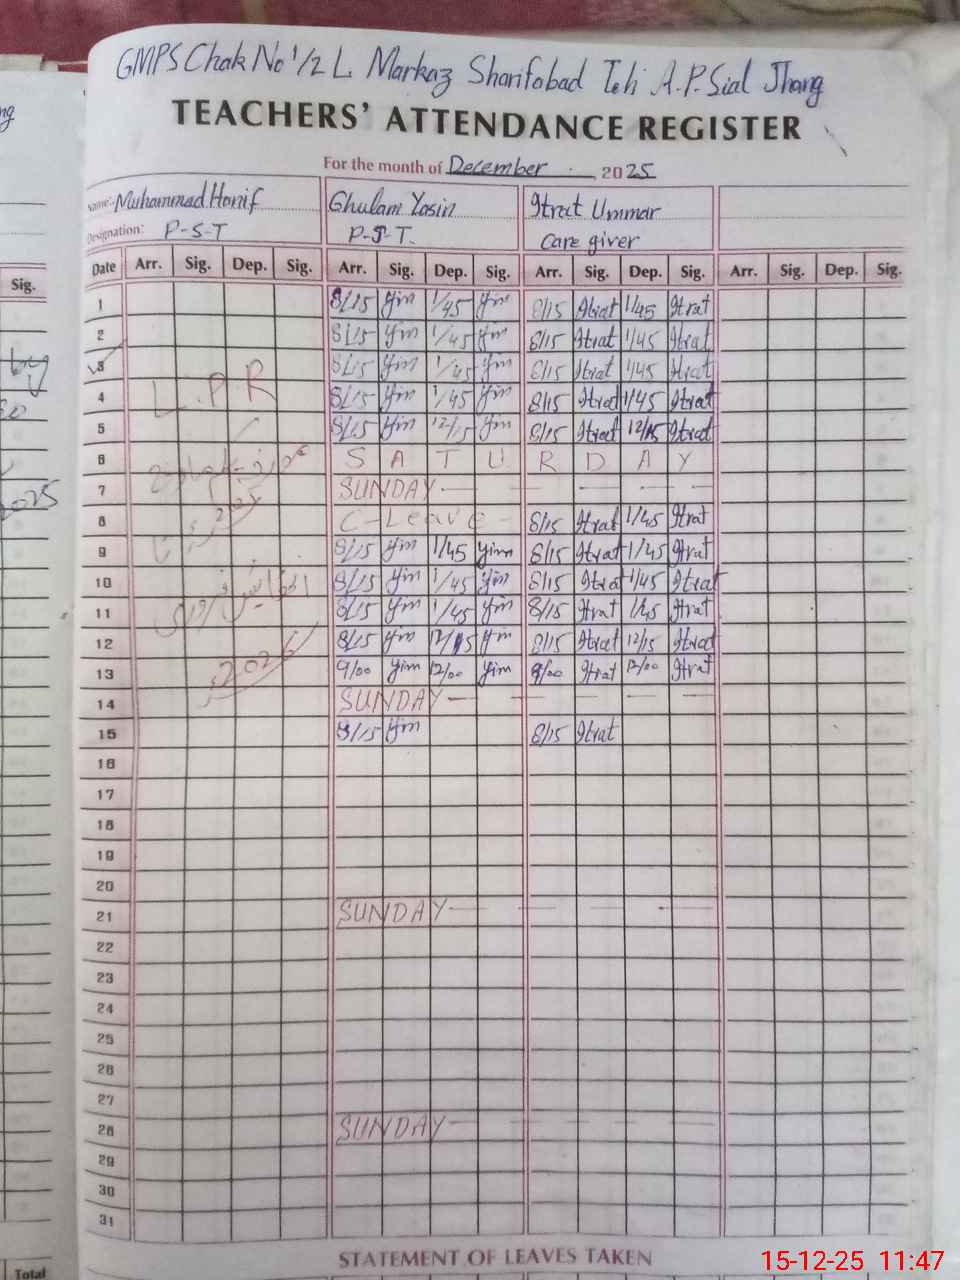 GMPS Chak No 1/2 L Markaz Sharifabad Teh A.P.Sial Jhang
TEACHERS' ATTENDANCE REGISTER
For the month of December 2025
Name:- Muhammad Hanif Ghulam Yasin Itrat Ummar
Designation: P-S-T P-S-T. Care giver
Date Arr. Sig. Dep. Sig. Arr. Sig. Dep. Sig. Arr. Sig. Dep. Sig. Arr. Sig. Dep. Sig.
1 8/15 Yim 1/45 Yim 8/15 Itrat 1/45 Itrat
2 8/15 Yim 1/45 Yim 8/15 Itrat 1/45 Itrat
3 8/15 Yim 1/45 Yim 8/15 Itrat 1/45 Itrat
4 L.P.R 8/15 Yim 1/45 Yim 8/15 Itrat 1/45 Itrat
5 8/15 Yim 12/15 Yim 8/15 Itrat 12/15 Itrat
6 SATURDAY
7 SUNDAY
8 C-Leave 8/15 Itrat 1/45 Itrat
9 8/15 Yim 1/45 Yim 8/15 Itrat 1/45 Itrat
10 8/15 Yim 1/45 Yim 8/15 Itrat 1/45 Itrat
11 8/15 Yim 1/45 Yim 8/15 Itrat 1/45 Itrat
12 8/15 Yim 12/15 Yim 8/15 Itrat 12/15 Itrat
13 9/00 Yim 12/00 Yim 9/00 Itrat 12/00 Itrat
14 2026 SUNDAY
15 8/15 Yim 8/15 Itrat
16
17
18
19
20
21 SUNDAY
22
23
24
25
26
27
28 SUNDAY
29
30
31
STATEMENT OF LEAVES TAKEN
Sig.
2025
Total
15-12-25 11:47